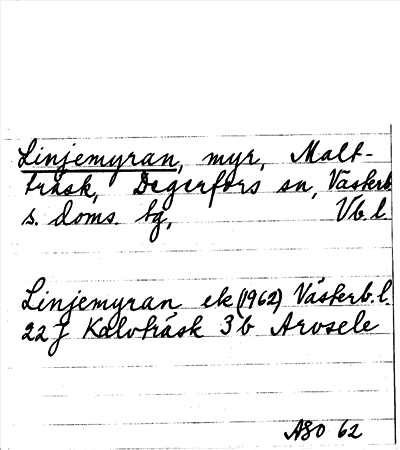 Linjemyran, myr, Malt-
träsk, Degerfors sn, Västerb.
s. doms. tg, Vb.l.
Linjemyran ek (1962) Västerb.l.
22 J Kalvträsk 3b Arvsele
ASO 62